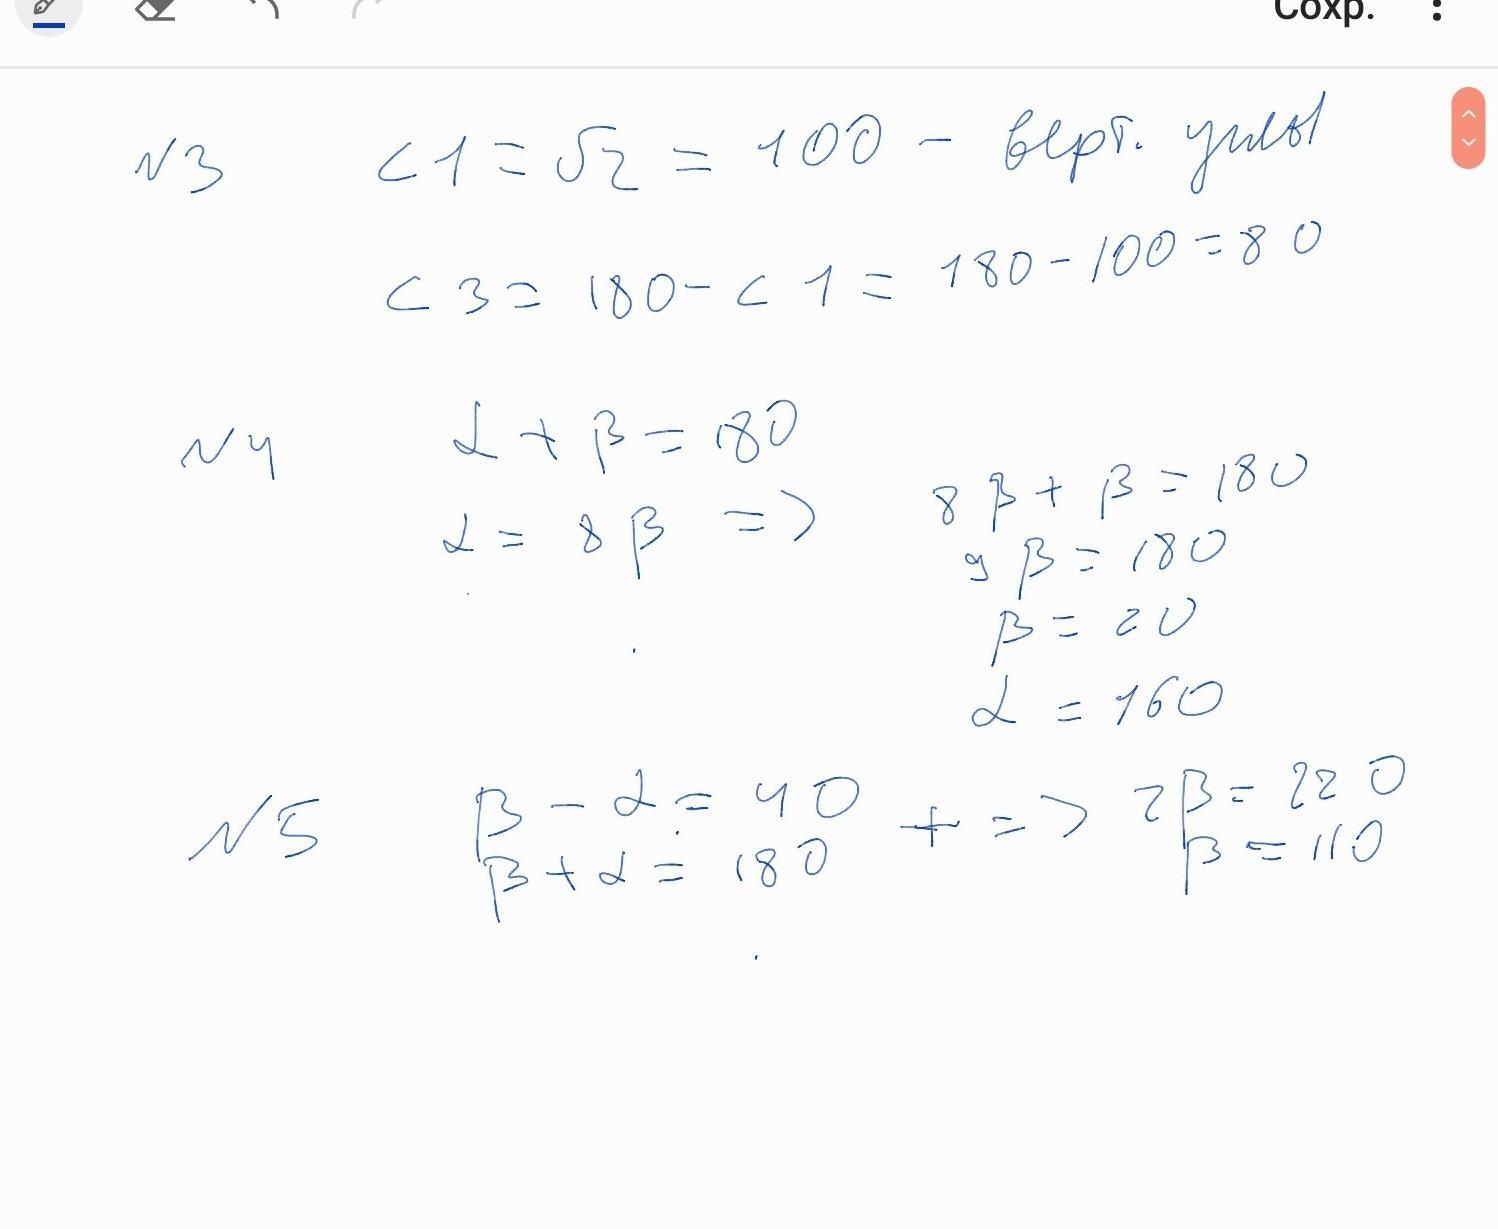 Сохр.
N3 <1 = √2 = 100 - верт. углы
<3 = 180 - <1 = 180 - 100 = 80
N4 α + β = 180
α = 8β => 8β + β = 180
9β = 180
β = 20
α = 160
N5 β - α = 40 + => 2β = 220
β + α = 180 β = 110